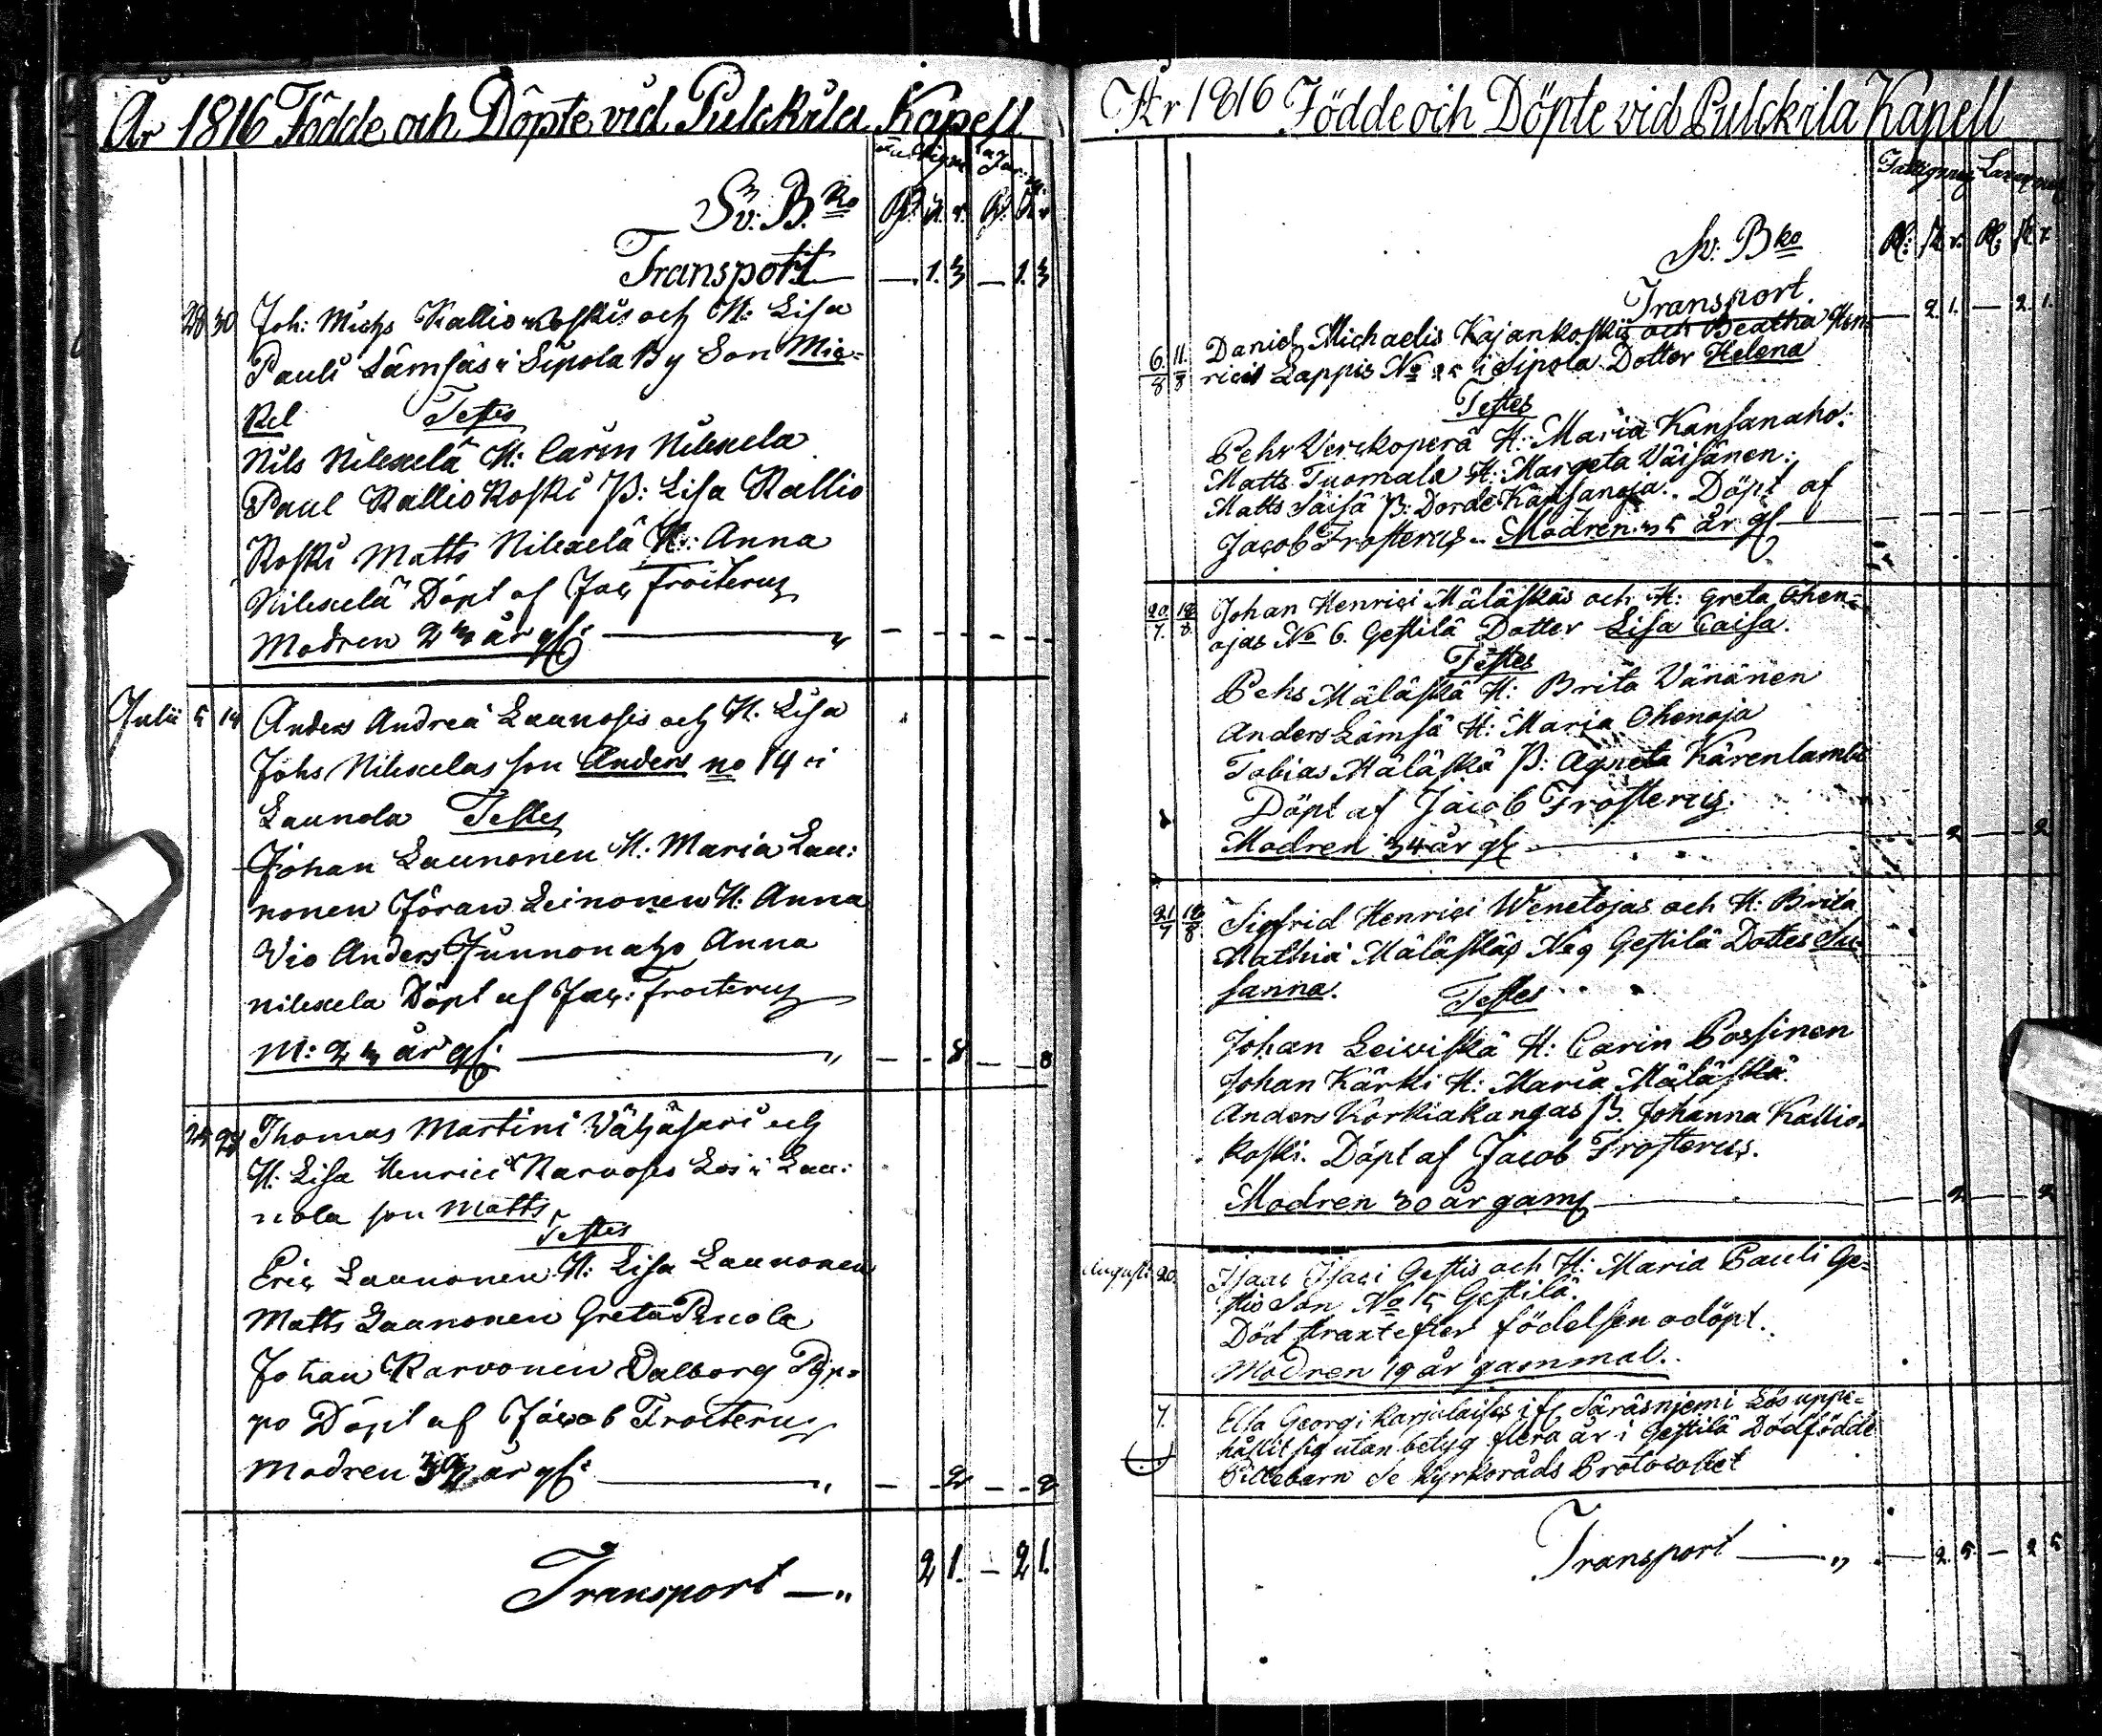 År 1816 Födde och Döpte vid Pulckila Kapell
Sv: B.ko
Transport — 1. 3 — 1. 3
28 30 Joh: Michs Kallio koskis och H: Lisa
Pauli Lämsäs i Sipola By Son Mic=
kel Testes
Nils Nilexelä H: Carin Nilexela
Paul Kallio Koski P: Lisa Kallio
Koski Matts Nilexelä H: Anna
Nilexelä Döpt af Jac Frosterus
Modren 23 år gl:
Julii 5 14 Anders Andreä Launosis och H. Lisa
Johs Nilexelas son Anders no 14 i
Launola Testes
Johan Launonen H: Maria Lau:
nonen Jöran Leinonen H: Anna
Vio Anders Junnonaho Anna
nilexela Döpt af Jac: Frosterus
M: 23 år gl: — 8 — 8
25 28 Thomas Martini Vähäsari och
H: Lisa Henrici Karvosis Lös i Lau:
nola son Matts
Testes
Eric Launonen H: Lisa Launonen
Matts Launonen Greta
Johan Karvonen Valborg Pyp=
po Döpt af Jacob Frosterus
Modren år gl: — 2 — 2
Transport — 2 1. — 2 1.
År 1816 Födde och Döpte vid Pulckila Kapell
Fattigmeg Lazarmeg
Sv: Bko
Transport. — 2. 1. — 2. 1.
6/8 11/8 Daniel Michaelis Kajankoskis och Beatha Hen=
rici Lappis No 25 i Sipola Dotter Helena
Testes
Pehr Verckoperä H: Maria Kansanaho:
Matts Tuomala H: Margeta Väisänen:
Matts Säisä P: Dorde Kansanoja. Döpt af
Jacob Frosterus. Modren 35 år gl
20/7 18/8 Johan Henrici Mäläskäs och H: Greta Ohen=
ojas No 6. Gestilä Dotter Lisa Caisa.
Testes
Pehr Mäläskä H: Brita Vänänen
Anders Lämsä H: Maria Ohenoja
Tobias Mäläskä P: Agneta Kärenlambi
Döpt af Jacob Frosterus.
Modren 34 år gl — 2 — 2
21/7 18/8 Sigfrid Henrici Wenetojas och H: Brita
Mathiä Mäläskäs No 9 Gestilä Dotter Su=
sanna. Testes
Johan Leiviskä H: Carin Possinen
Johan Kärki H: Maria Mäläskä.
Anders Korkiakangas P. Johanna Kallio=
koski. Döpt af Jacob Frosterus.
Modren 30 år gaml — 2 — 2
Augusti 20. Isaac Isaci Gestis och H: Maria Pauli Ge=
stis Son No 5 Gestilä.
Död straxt efter födelsen odöpt.
Modren 19 år gammal.
7. Elsa Georgi Karjalaises ifr Säräsnjemi Lös uppe=
hållit sig utan betyg flera år i Gestilä Dödfödde
Pillebarn Se Kyrkoråds Protocollet
Transport — 2. 5 — 2 5